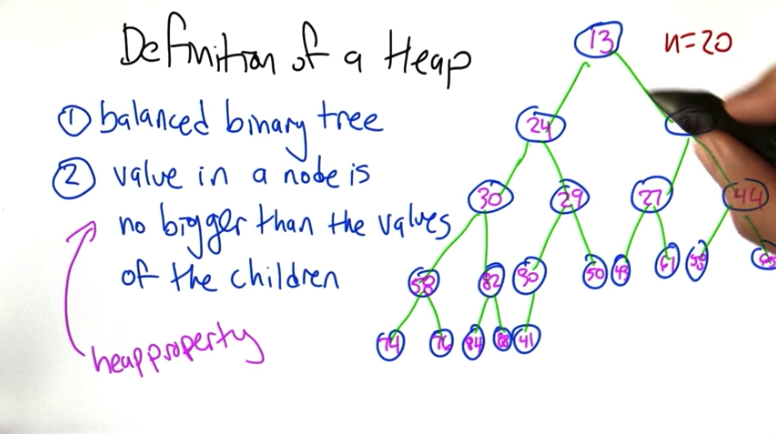 Definition of a Heap
n=20
① balanced binary tree
② value in a node is
no bigger than the values
of the children
heap property
13
24
30 29 27 44
58 82 50 49 61
74 76 84 88 41